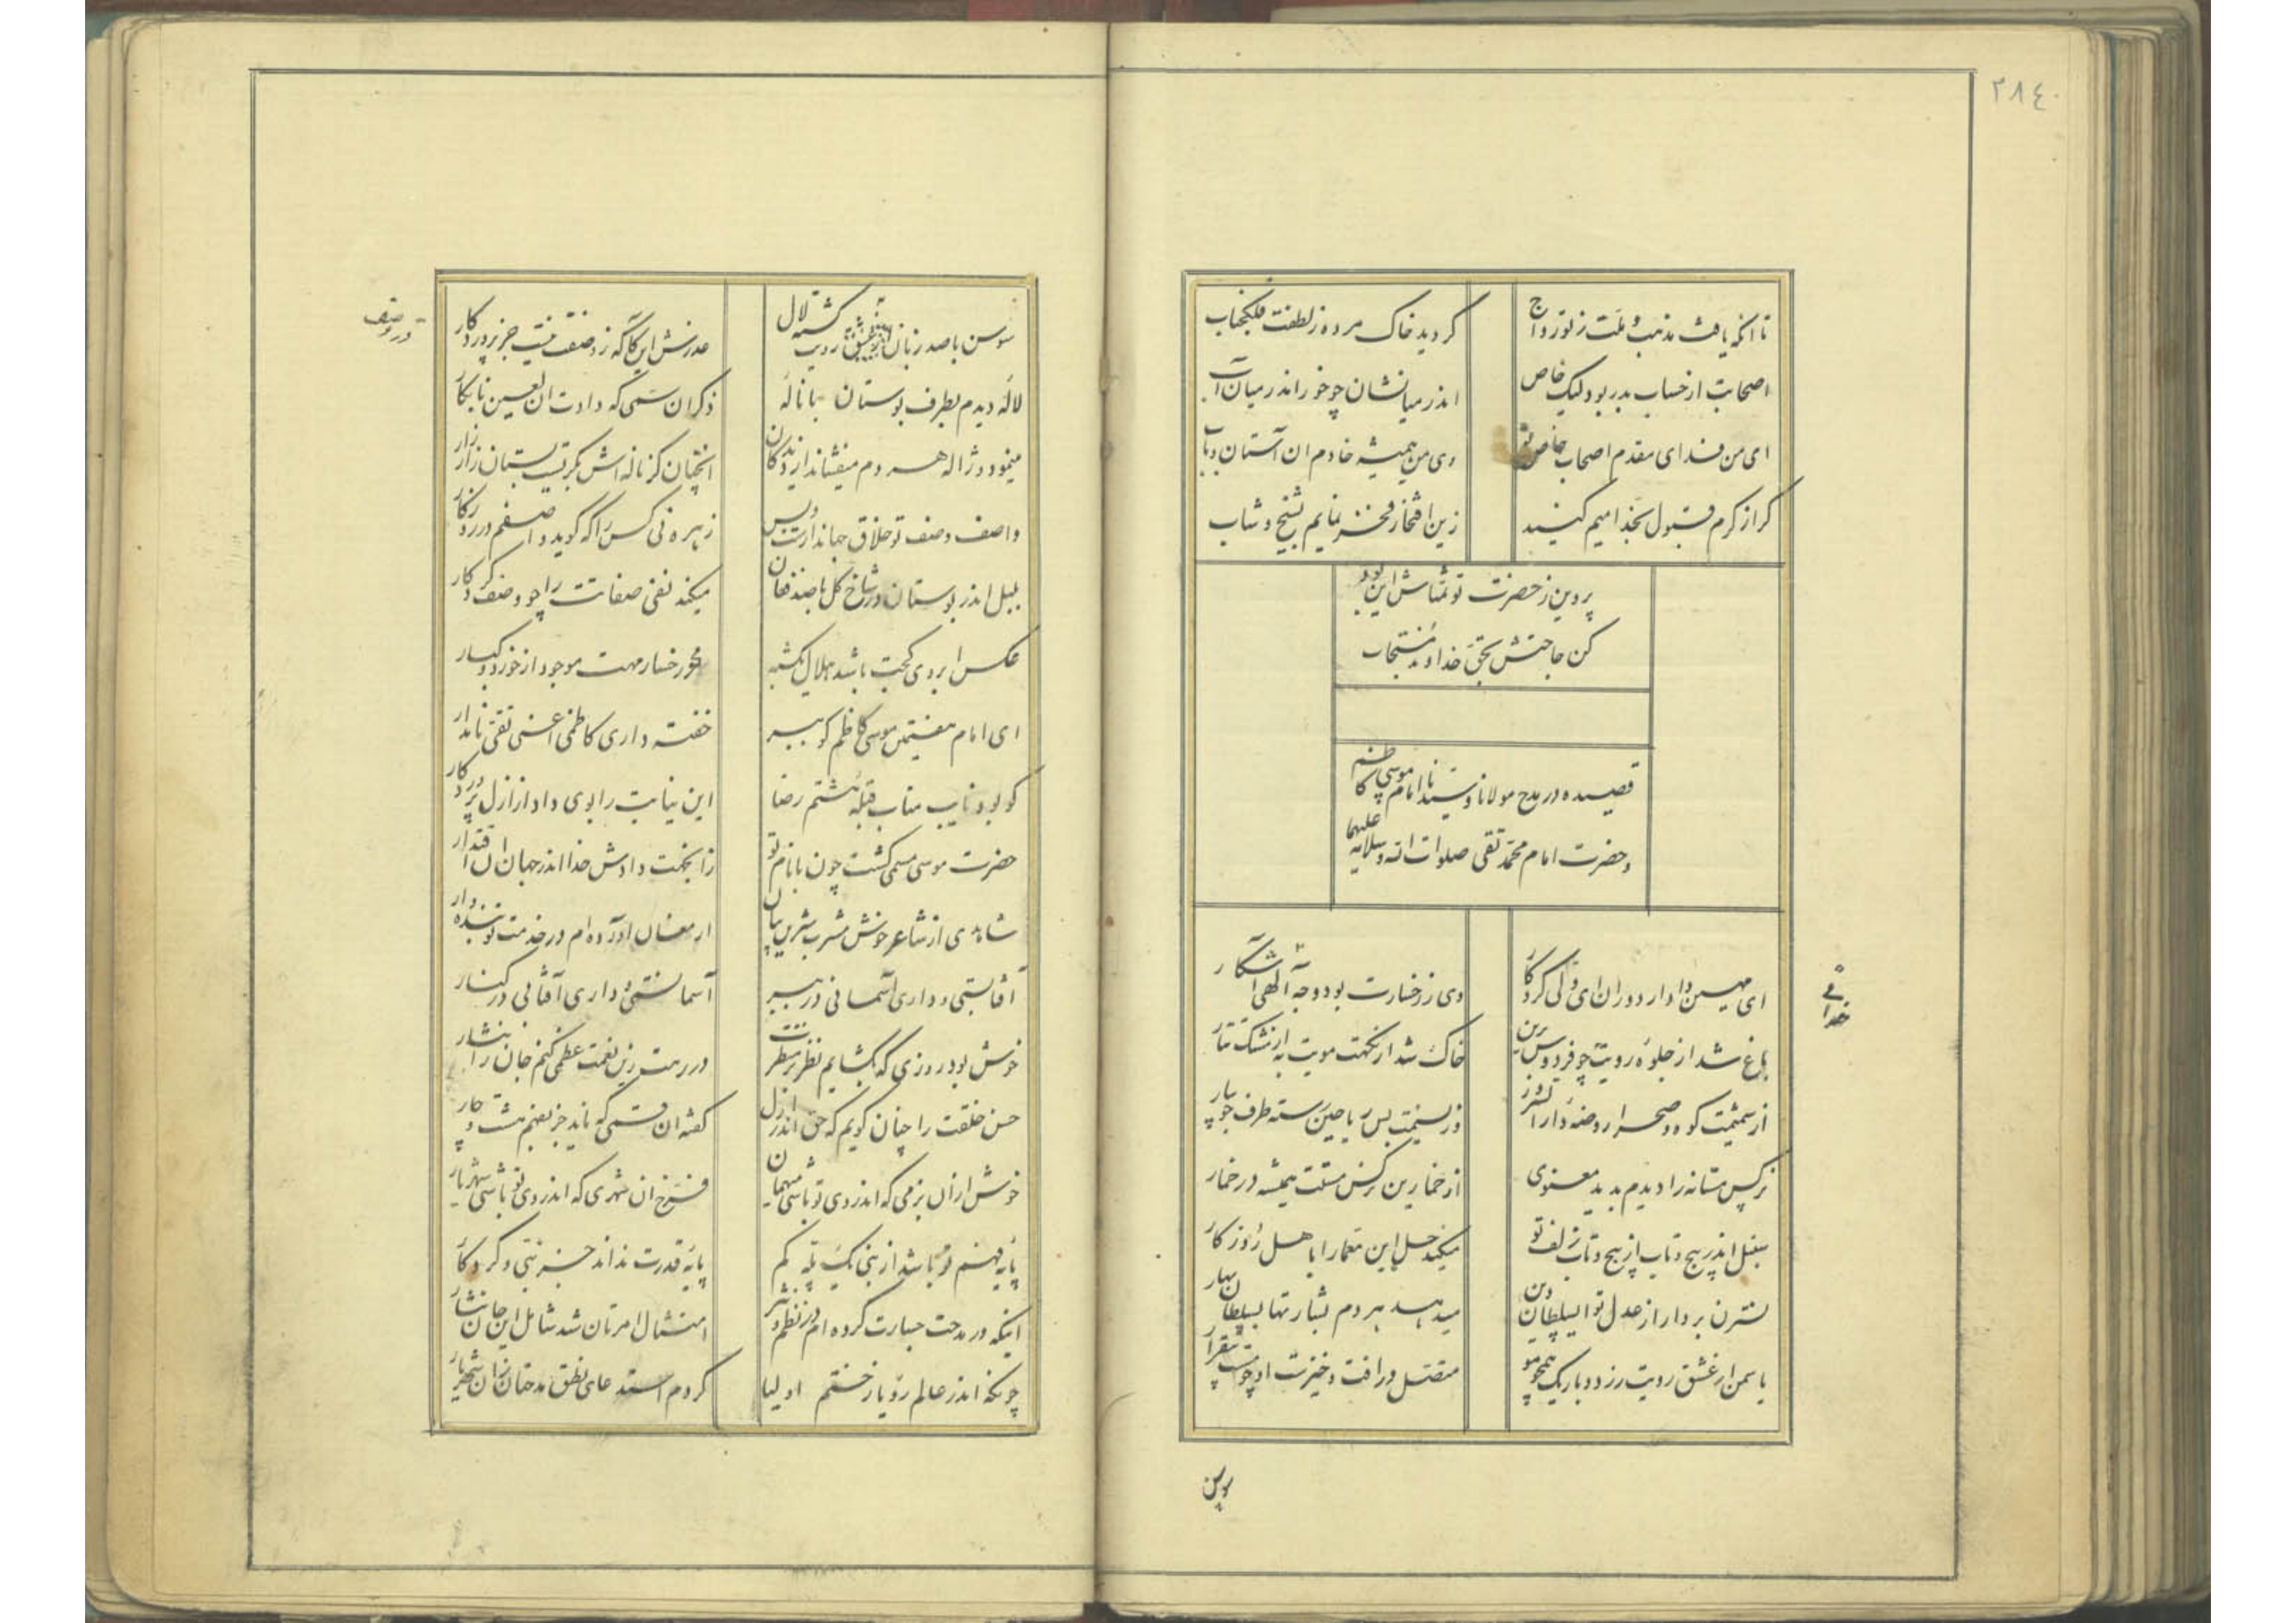 ۲۸٤
تا انکه یافت مذهب و ملت ز تو رواج
کردید خاک مرده ز لطفت
اصحابت از حساب بدر بود لیک خاص
اندر میانشان چو خور اندر میان آب
ای من فدای مقدم اصحاب خاص تو
وی من همیشه خادم ان آستان و باب
کر از کرم قبول بخدامیم کنید
زین افتخار فخر نمایم بشیخ و شاب
پروین ز حضرت تو تمناش این بود
کن حاجتش بحق خداوند مستجاب
قصیده در مدح مولانا و سیدنا امام موسی کاظم
و حضرت امام محمد تقی صلوات الله و سلامه علیهما
ای مهین داوار دوران ای ولی کردکار
وی ز رخسارت بود وجه الهی آشکار
خدائی
باغ شد از جلوه رویت چو فردوس برین
خاک شد از نکهت مویت به از مشک تتار
از شمیمت کوه و صحرا روضه دار
وز نسیمت بس ریاحین رسته طرف جویبار
نرکس مستانه را دیدم بدید معنوی
از خمارین نرکس مستت همیشه در خمار
سنبل اندر پیچ و تاب از پیچ و تاب زلف تو
میکند حل این معما را با هل روزکار
نسترن بردار از عدل تو ایسلطان دین
میدهد هر دم بشارتها بسلطان بهار
یاسمن از عشق رویت زرد و باریک همچو مو
متصل در افت و خیزت او چو مست
سوسن با صد زبان رویت کشته لال
عذرش این کاکه ز وصفت نیست جز پروردکار
در وصف
لاله دیدم بطرف بوستان با ناله
ذکر ان سمی که دادت ان لعین نابکار
مینمود و ژاله هر دم میفشاند از دیدکان
انچنان کز ناله اش بکریست بستان زار زار
واصف وصف تو خلاق جهاندارست و بس
زهره نی کس را که کوید واصفم در روزکار
بلبل اندر بوستان در شاخ کل با صد فغان
میکند نفی صفاتت را چو وصف کردکار
عکس ابروی کجت باشد هلال یکشبه
محو رخسار مهت موجود از خورد و کبار
ای امام هفتمین موسی کاظم کو ببر
خفته داری کاظمی اعنی تقی نامدار
کو بود نایب مناب قبله هشتم رضا
این نیابت را بوی داد از ازل پروردکار
حضرت موسی مسمی کشت چون با نام تو
زانجهت دادش خدا اندر جهان ان اقتدار
شاهدی از شاعر خوش مشرب شیرین بیان
ارمغان آورده ام در خدمت تو بنده وار
آفتابستی و داری آسمانی در ببر
آسمانستی و داری آفتابی در کنار
خوش بود روزی که بکشایم نظر بر منظرت
در رهت زین نعمت عظمی کنم جان را نثار
حسن خلقت را چنان کویم که حق اندر ازل
کفته ان قسمی که ناید جز بفهم هشت و چار
خوش ازان بزمی که اندر وی تو باشی میهمان
فرخ ان شهری که اندر وی تو باشی شهریار
پایه فهم تو باشد از نبی یک پله کم
پایه قدرت نداند جز نبی و کردکار
اینکه در مدحت جسارت کرده ام در نظم و نثر
امتثال امرتان شد شامل این جان نثار
چونکه اندر عالم رویا ز ختم اولیا
کردم استدعای نطق مدحتان زان شهریار